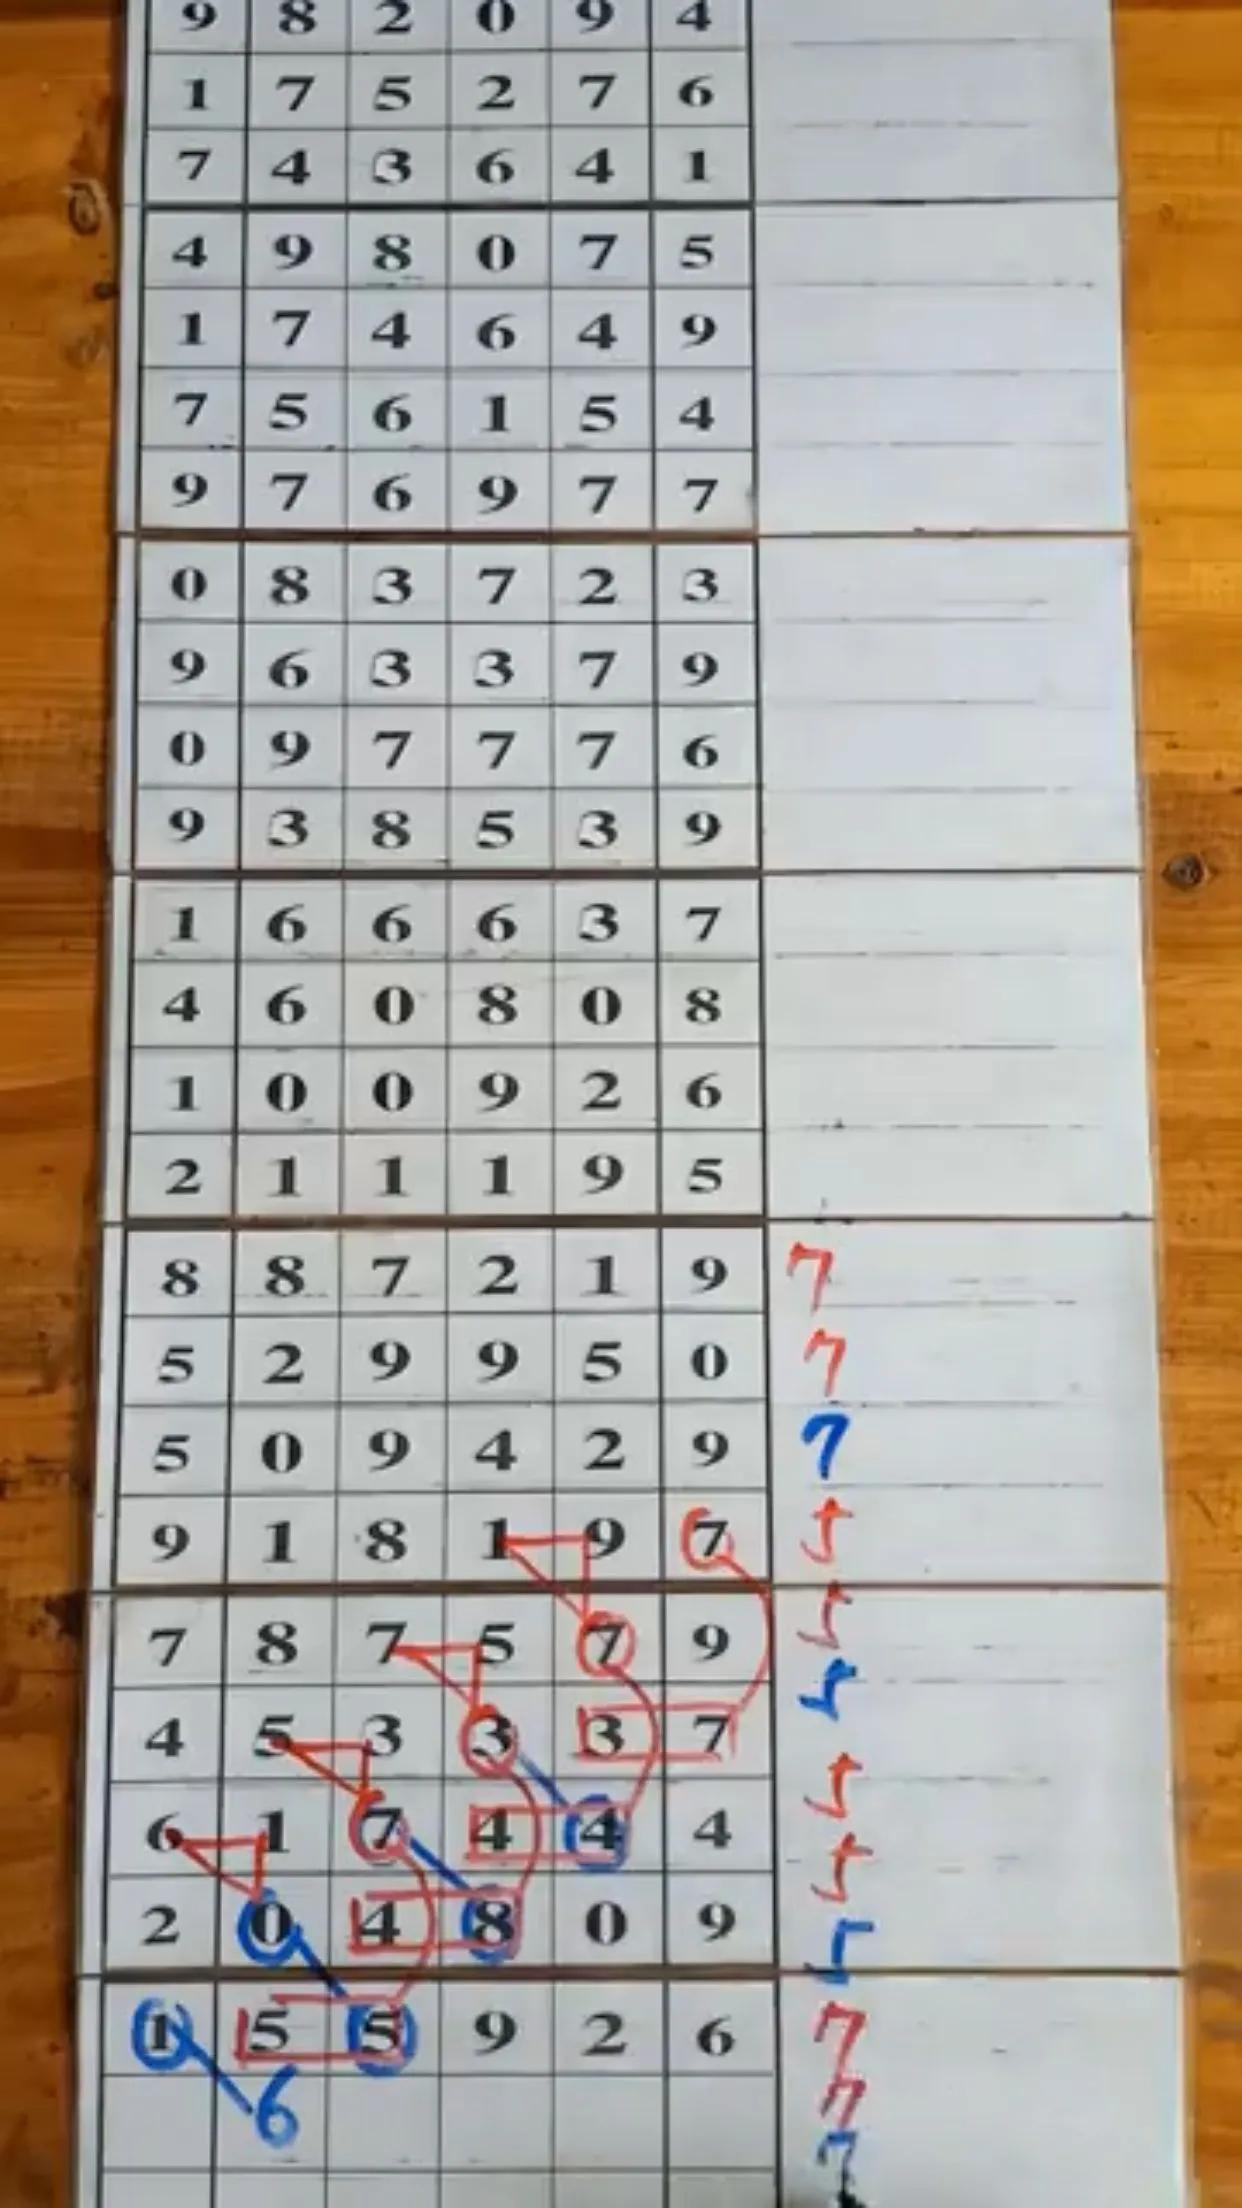 9 8 2 0 9 4
1 7 5 2 7 6
7 4 3 6 4 1
4 9 8 0 7 5
1 7 4 6 4 9
7 5 6 1 5 4
9 7 6 9 7 7
0 8 3 7 2 3
9 6 3 3 7 9
0 9 7 7 7 6
9 3 8 5 3 9
1 6 6 6 3 7
4 6 0 8 0 8
1 0 0 9 2 6
2 1 1 1 9 5
8 8 7 2 1 9 7
5 2 9 9 5 0 7
5 0 9 4 2 9 7
9 1 8 1 9 7
7 8 7 5 7 9
4 5 3 3 3 7
6 1 7 4 4 4
2 0 4 8 0 9
1 5 5 9 2 6 7
6 7
7